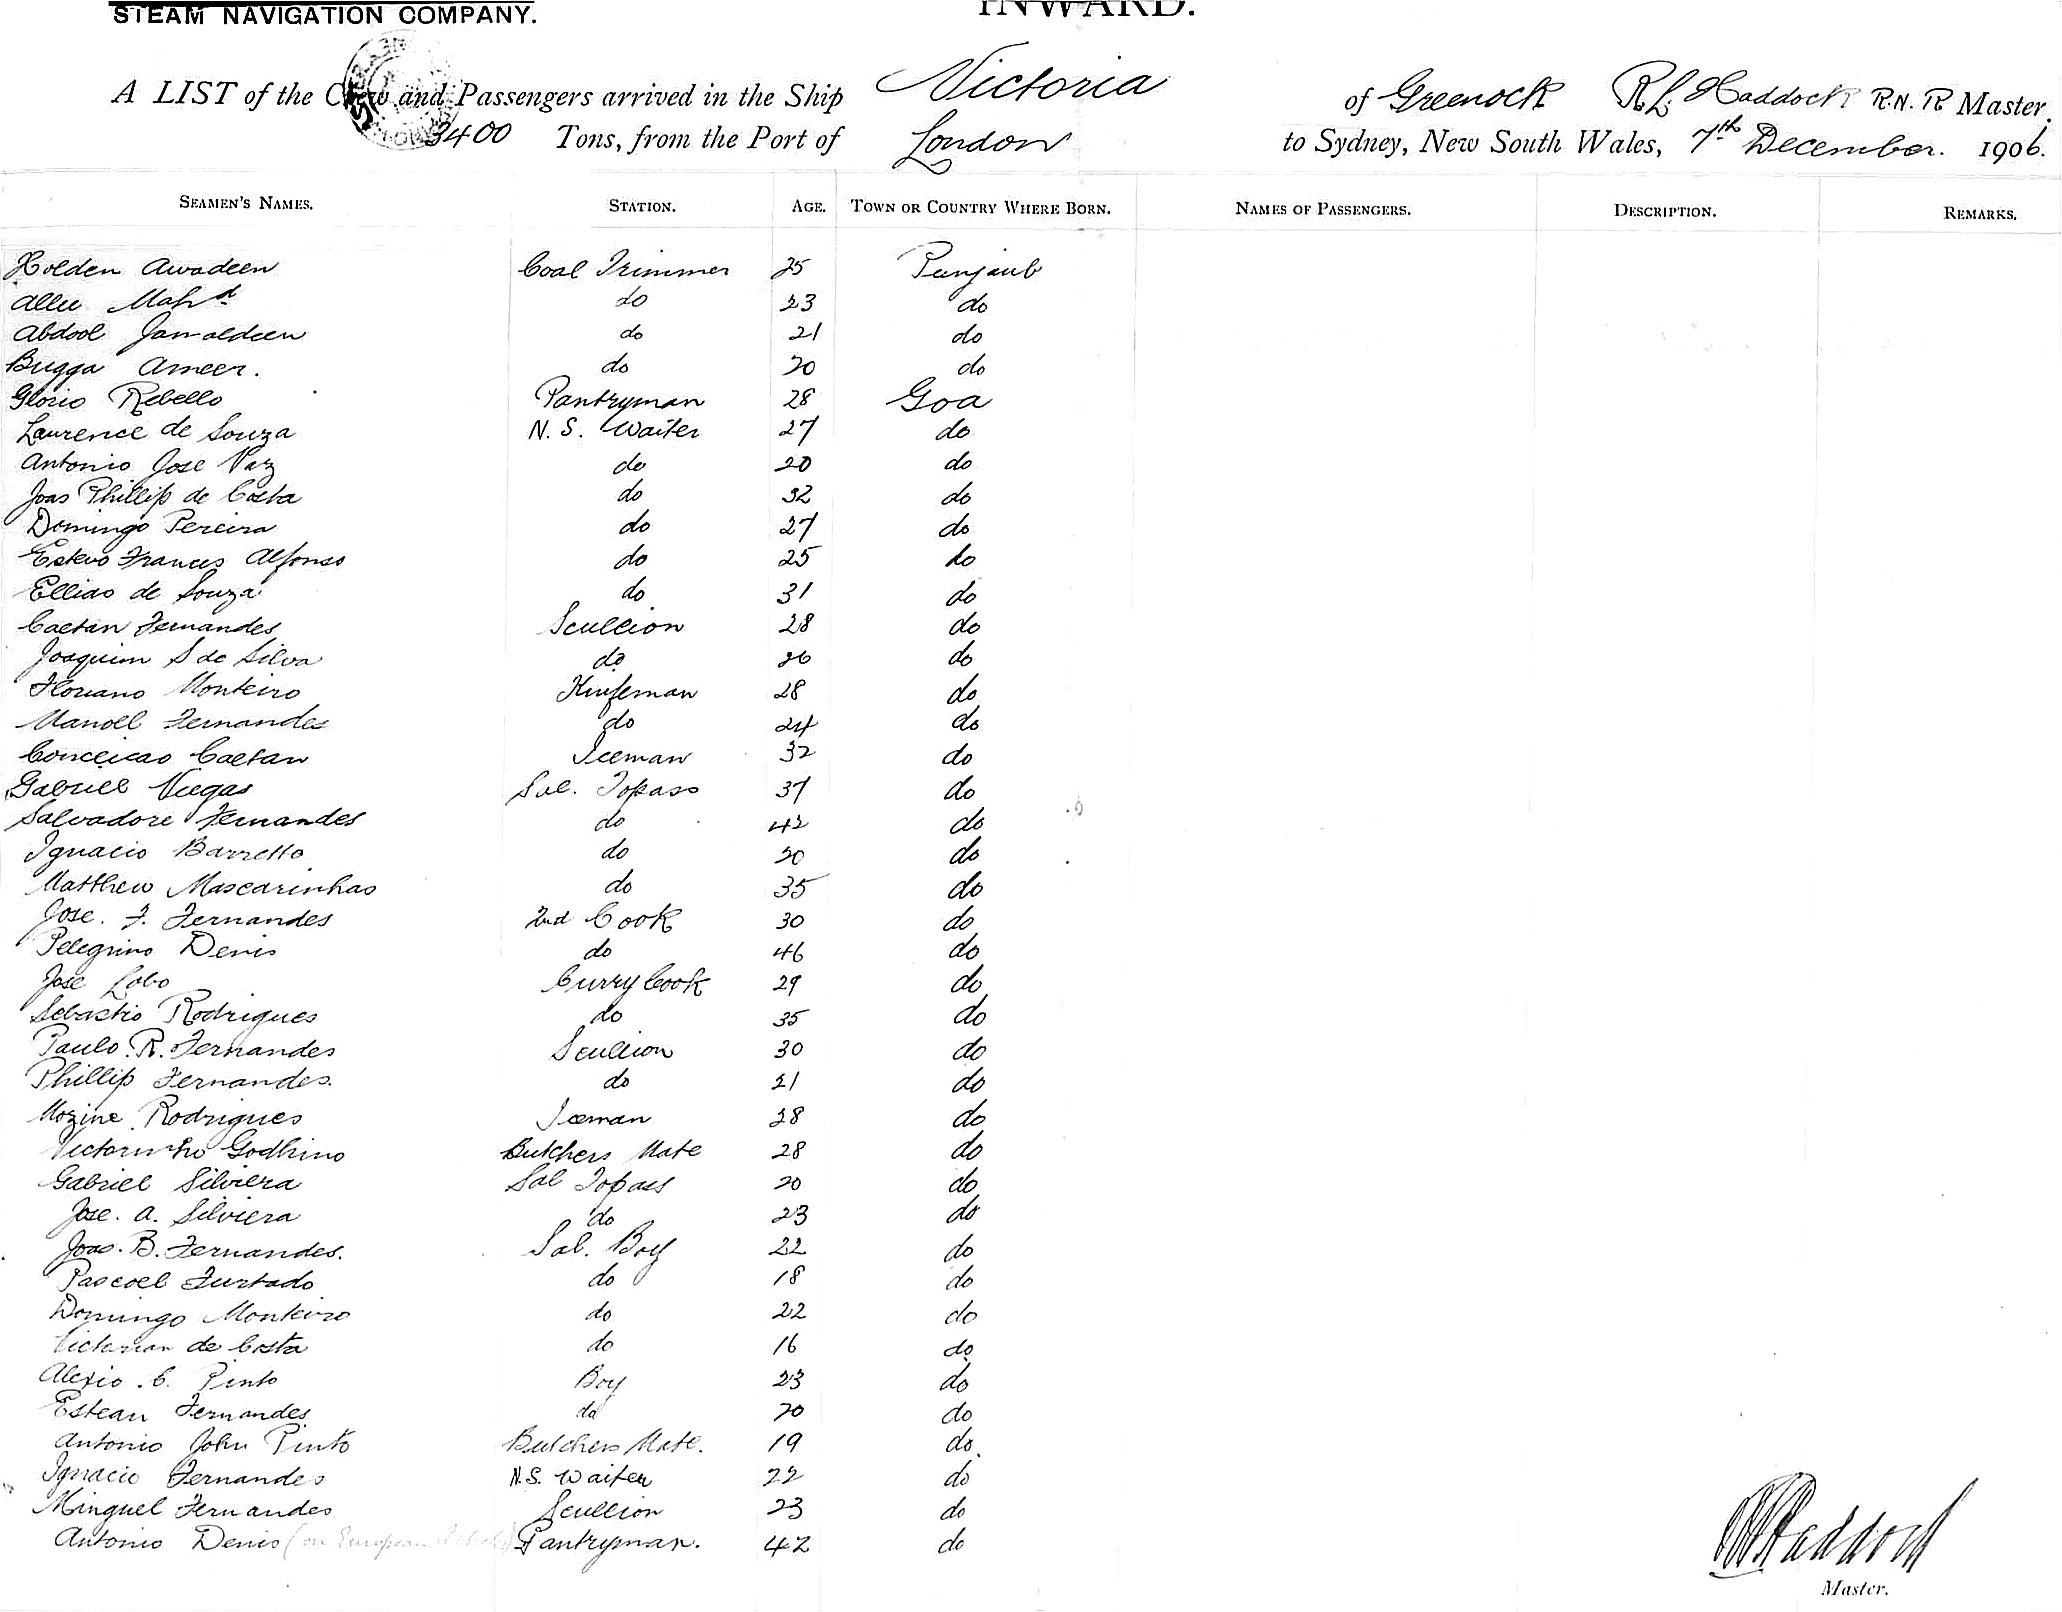 STEAM NAVIGATION COMPANY. INWARD.
A LIST of the Crew and Passengers arrived in the Ship Victoria of Greenock R L Haddock R.N.R Master.
3400 Tons, from the Port of London to Sydney, New South Wales, 7th December. 1906.
SEAMEN'S NAMES. STATION. AGE. TOWN OR COUNTRY WHERE BORN. NAMES OF PASSENGERS. DESCRIPTION. REMARKS.
Holden Awadeen Coal Trimmer 25 Punjaub
Allu Mahd do 23 do
Abdool Jamaldeen do 21 do
Bugga Ameer. do 20 do
Glorio Rebello Pantryman 28 Goa
Laurence de Souza N.S. Waiter 27 do
Antonio Jose Vaz do 20 do
Joas Phillip de Costa do 32 do
Domingo Pereira do 27 do
Estevo Frances Alfonso do 25 do
Ellias de Souza do 31 do
Caetan Fernandes Scullion 28 do
Joaquim S de Silva do 26 do
Floriano Monteiro Knifeman 28 do
Manoel Fernandes do 24 do
Conceicao Caetan Iceman 32 do
Gabriel Viegas Sal. Topass 37 do
Salvadore Fernandes do 42 do
Ignacio Barretto do 50 do
Matthew Mascarinhas do 35 do
Jose. F. Fernandes 2nd Cook 30 do
Pelegrino Denis do 46 do
Jose Lobo Curry Cook 29 do
Sebastio Rodrigues do 35 do
Paulo. R. Fernandes Scullion 30 do
Phillip Fernandes. do 21 do
Mozine Rodrigues Iceman 28 do
Victorinho Godhino Butchers Mate 28 do
Gabriel Silviera Sal Topass 20 do
Jose. A. Silviera do 23 do
Joao. B. Fernandes. Sal. Boy 22 do
Pascoel Furtado do 18 do
Domingo Monteiro do 22 do
Victorian de Costa do 16 do
Alexio. C. Pinto Boy 23 do
Estean Fernandes do 20 do
Antonio John Pinto Butchers Mate. 19 do
Ignacio Fernandes N.S. Waiter 22 do
Minguel Fernandes Scullion 23 do
Antonio Denis (on European Pantryman. 42 do
Haddock
Master.